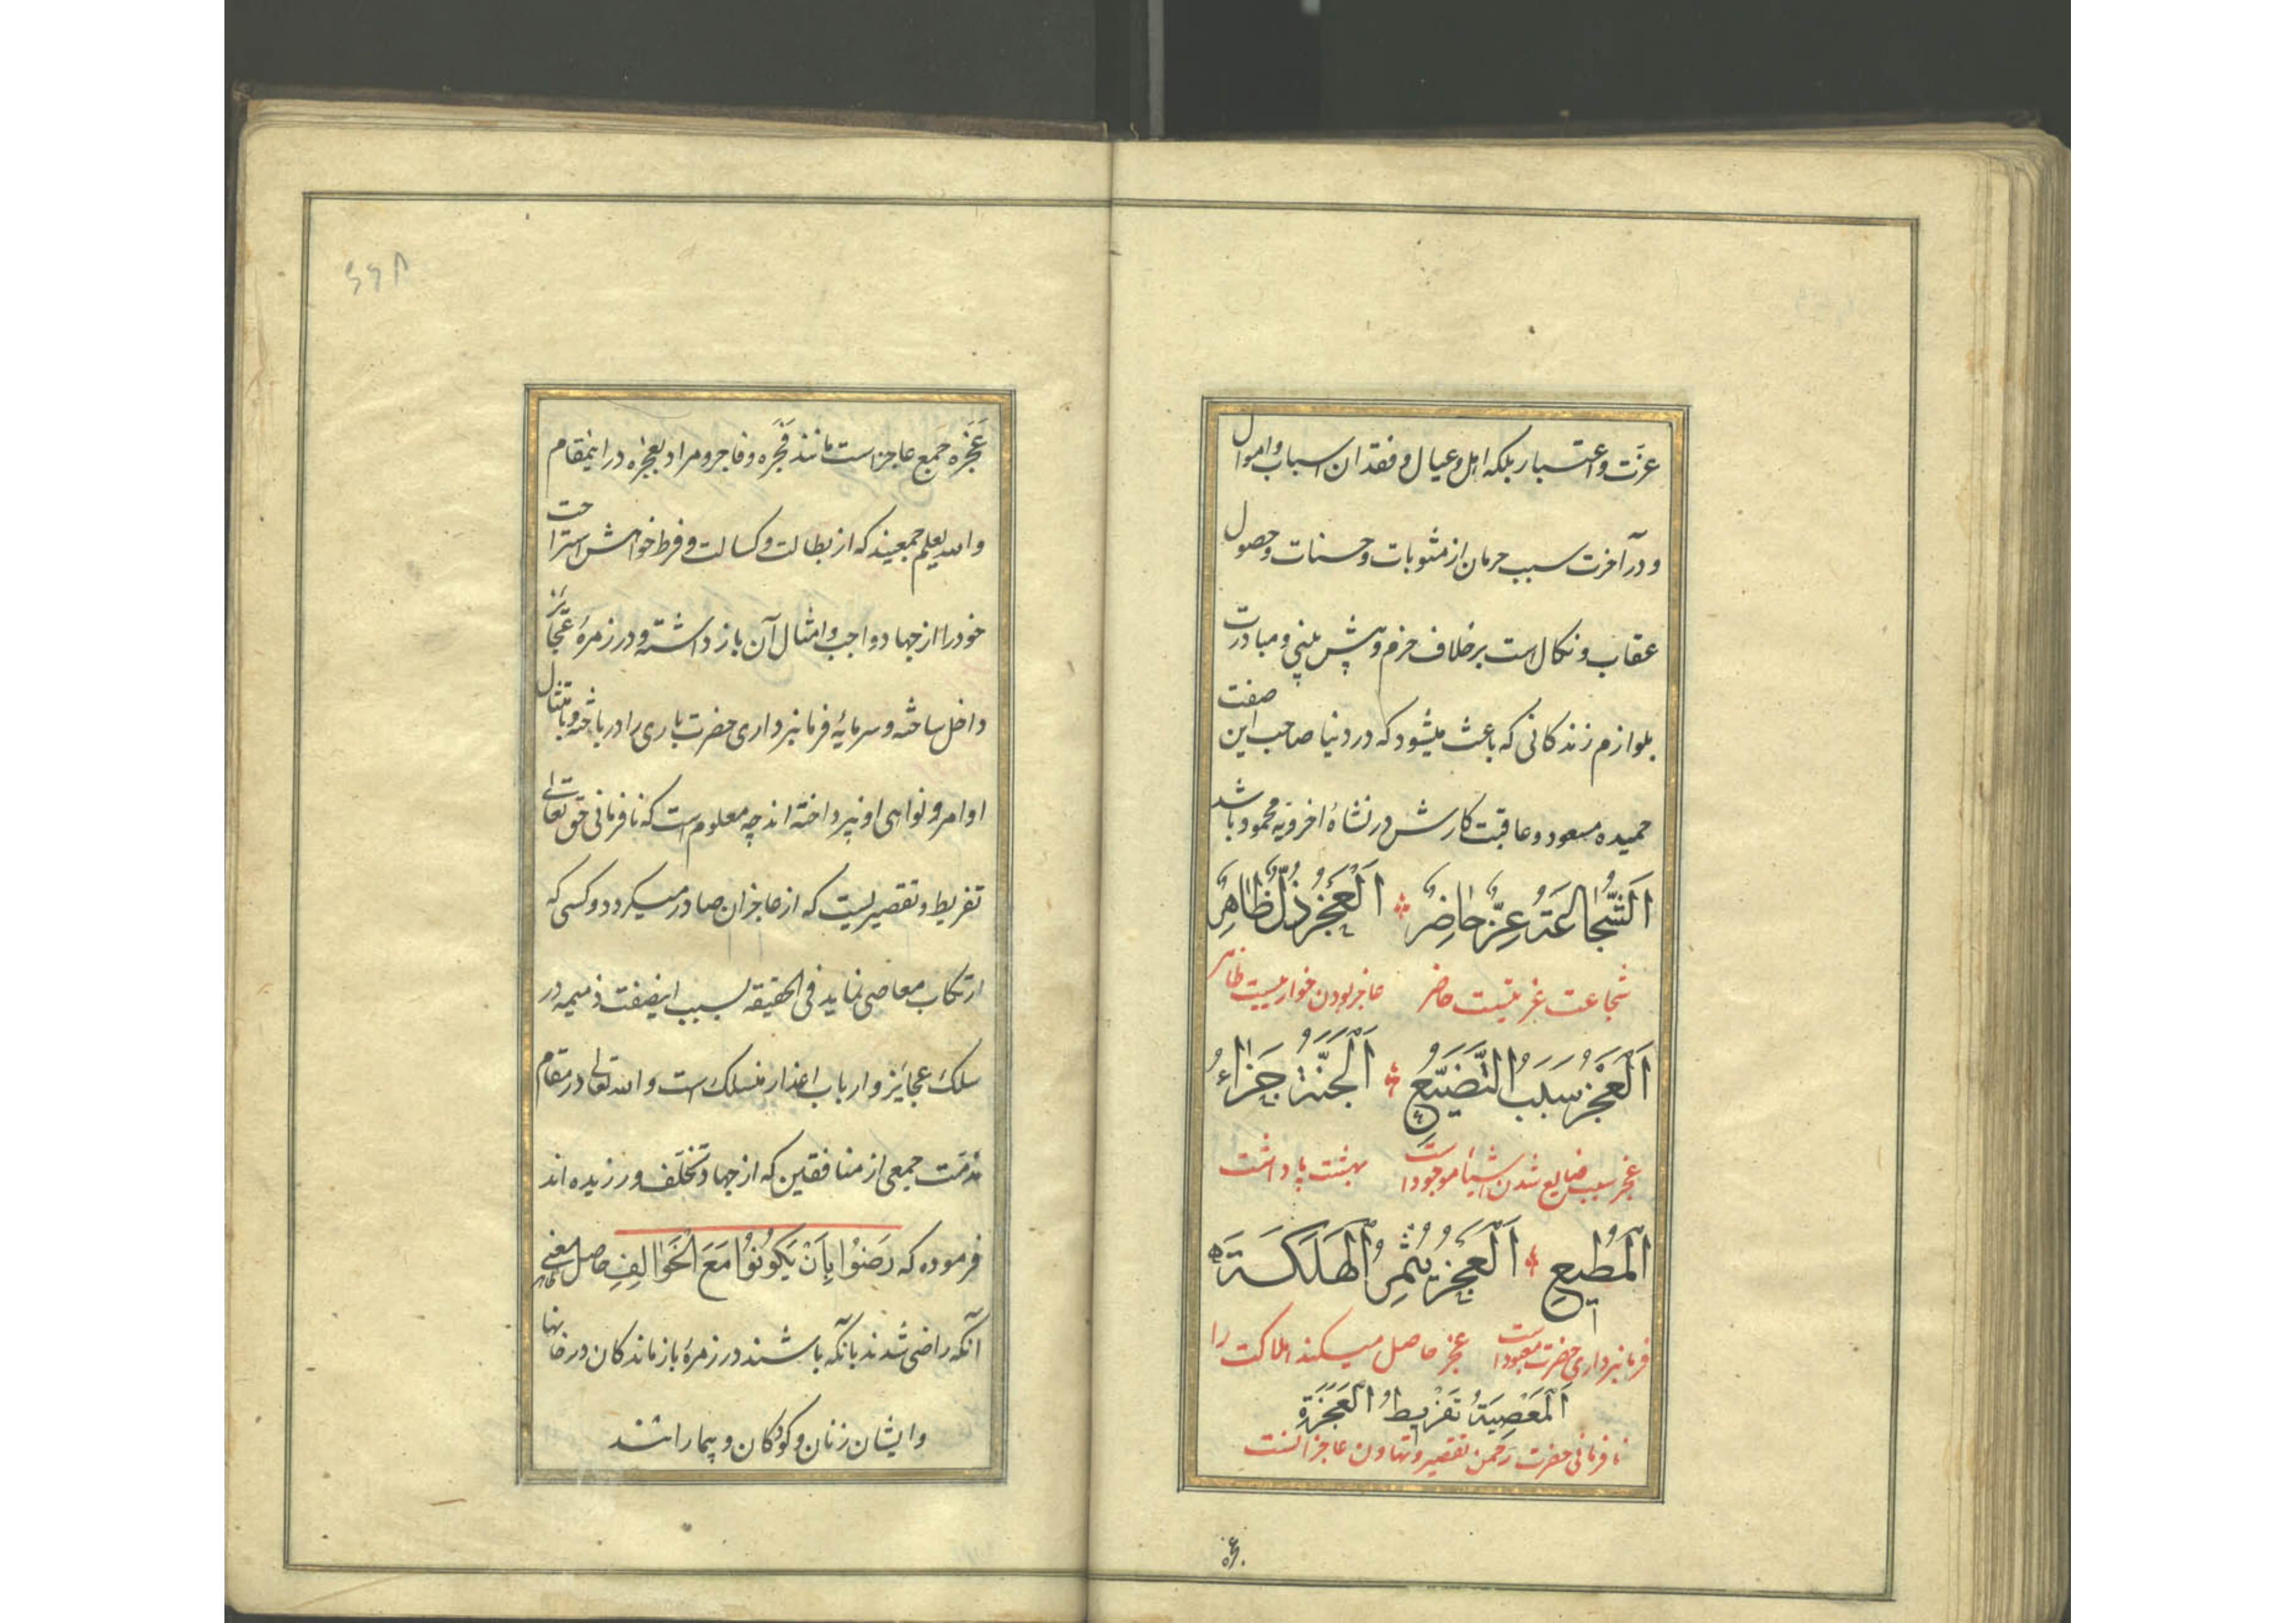 عزّت و اعتبار بلکه اهل و عیال و فقدان اسباب و اموال
و در آخرت سبب حرمان از مثوبات و حسنات و حصول
عقاب و نکال است بر خلاف حزم و پیش بینی و مبادرت
بلوازم زندکانی که باعث میشود که در دنیا صاحب این صفت
حمیده مسعود و عاقبت کارش در نشاهٔ اخرویه محمود باشد
اَلشَّجاعَةُ عِزٌّ حاضِرٌ اَلْعَجْزُ ذُلٌّ ظاهِرٌ
شجاعت عزیتیست حاضر عاجز بودن خواریست ظاهر
اَلْعَجْزُ سَبَبُ التَّضْیِیعِ اَلْجَنَّةُ جَزاءُ
عجز سبب ضایع شدن اشیاء موجود است بهشت پاداشت
اَلْمُطیعِ اَلْعَجْزُ یُثْمِرُ الْهَلَکَةَ
فرمانبرداری حضرت معبود است عجز حاصل میکند هلاکت را
اَلْمَعْصِیَةُ تَفْریطُ الْعَجَزَةِ
نافرمانی حضرت رحمن تقصیر و تهاون عاجزانست
عجزه
۸۶۶
عَجَزه جمع عاجز است مانند فَجَره و فاجر و مراد بعجزه در اینمقام
و الله یعلم جمعیند که از بطالت و کسالت و فرط خواهش استراحت
خود را از جهاد واجب و امثال آن باز داشته و در زمرهٔ عجایز
داخل ساخته و سرمایهٔ فرمانبرداری حضرت باری را در باخته و بامتثال
اوامر و نواهی او نپرداخته اند چه معلوم است که نافرمانی حق تعالی
تفریط و تقصیریست که از عاجزان صادر میکردد و کسی که
ارتکاب معاصی نماید فی الحقیقه بسبب اینصفت ذمیمه در
سلک عجایز و ارباب اعذار منسلک است و الله تعالی در مقام
مذمّت جمعی از منافقین که از جهاد تخلّف ورزیده اند
فرموده که رَضُوا بِاَنْ یَکُونُوا مَعَ الْخَوالِفِ حاصل معنی
آنکه راضی شدند بآنکه باشند در زمرهٔ بازماندکان در خانها
و ایشان زنان و کودکان و بیمارانند